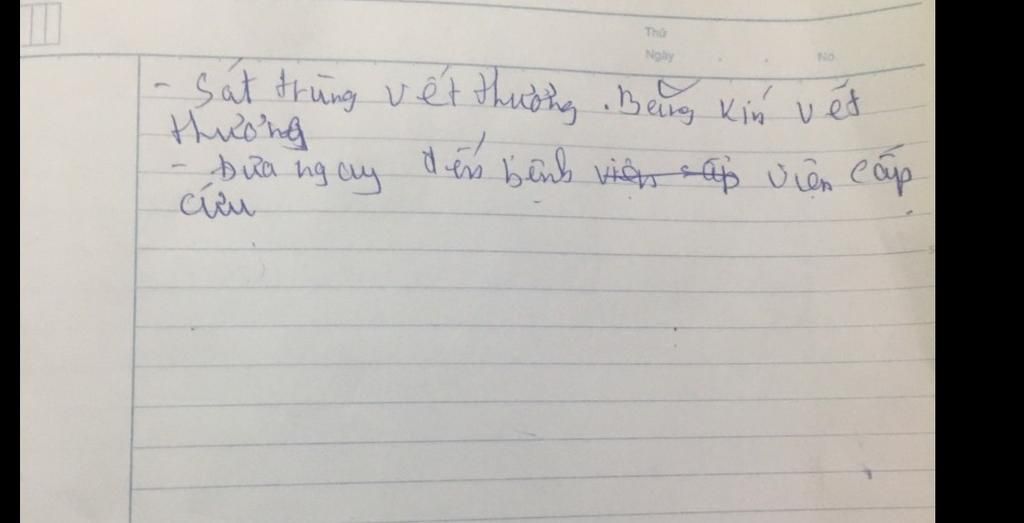 Thứ
Ngày . . No.
- Sát trùng vết thương. Băng kín vết
thương
- Đưa ngay đến bệnh viện cấp viện cấp
cứu